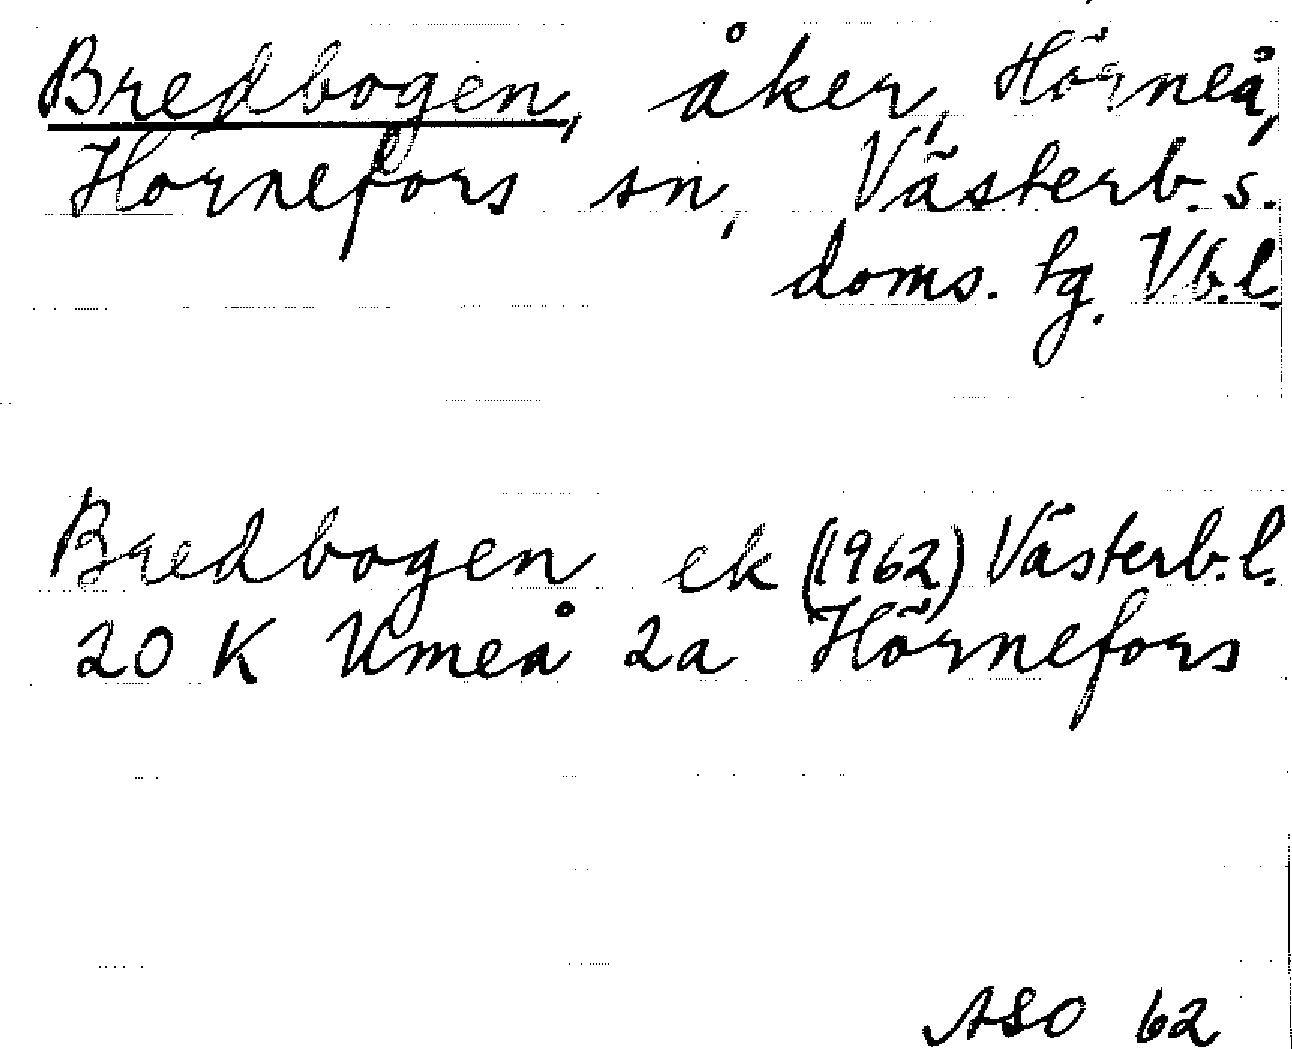 Bredbogen, åker, Hörneå,
Hörnefors sn, Västerb. s.
doms. tg. Vb.l.
Bredbogen ek (1962) Västerb.l.
20 K Umeå 2a Hörnefors
ASO 62